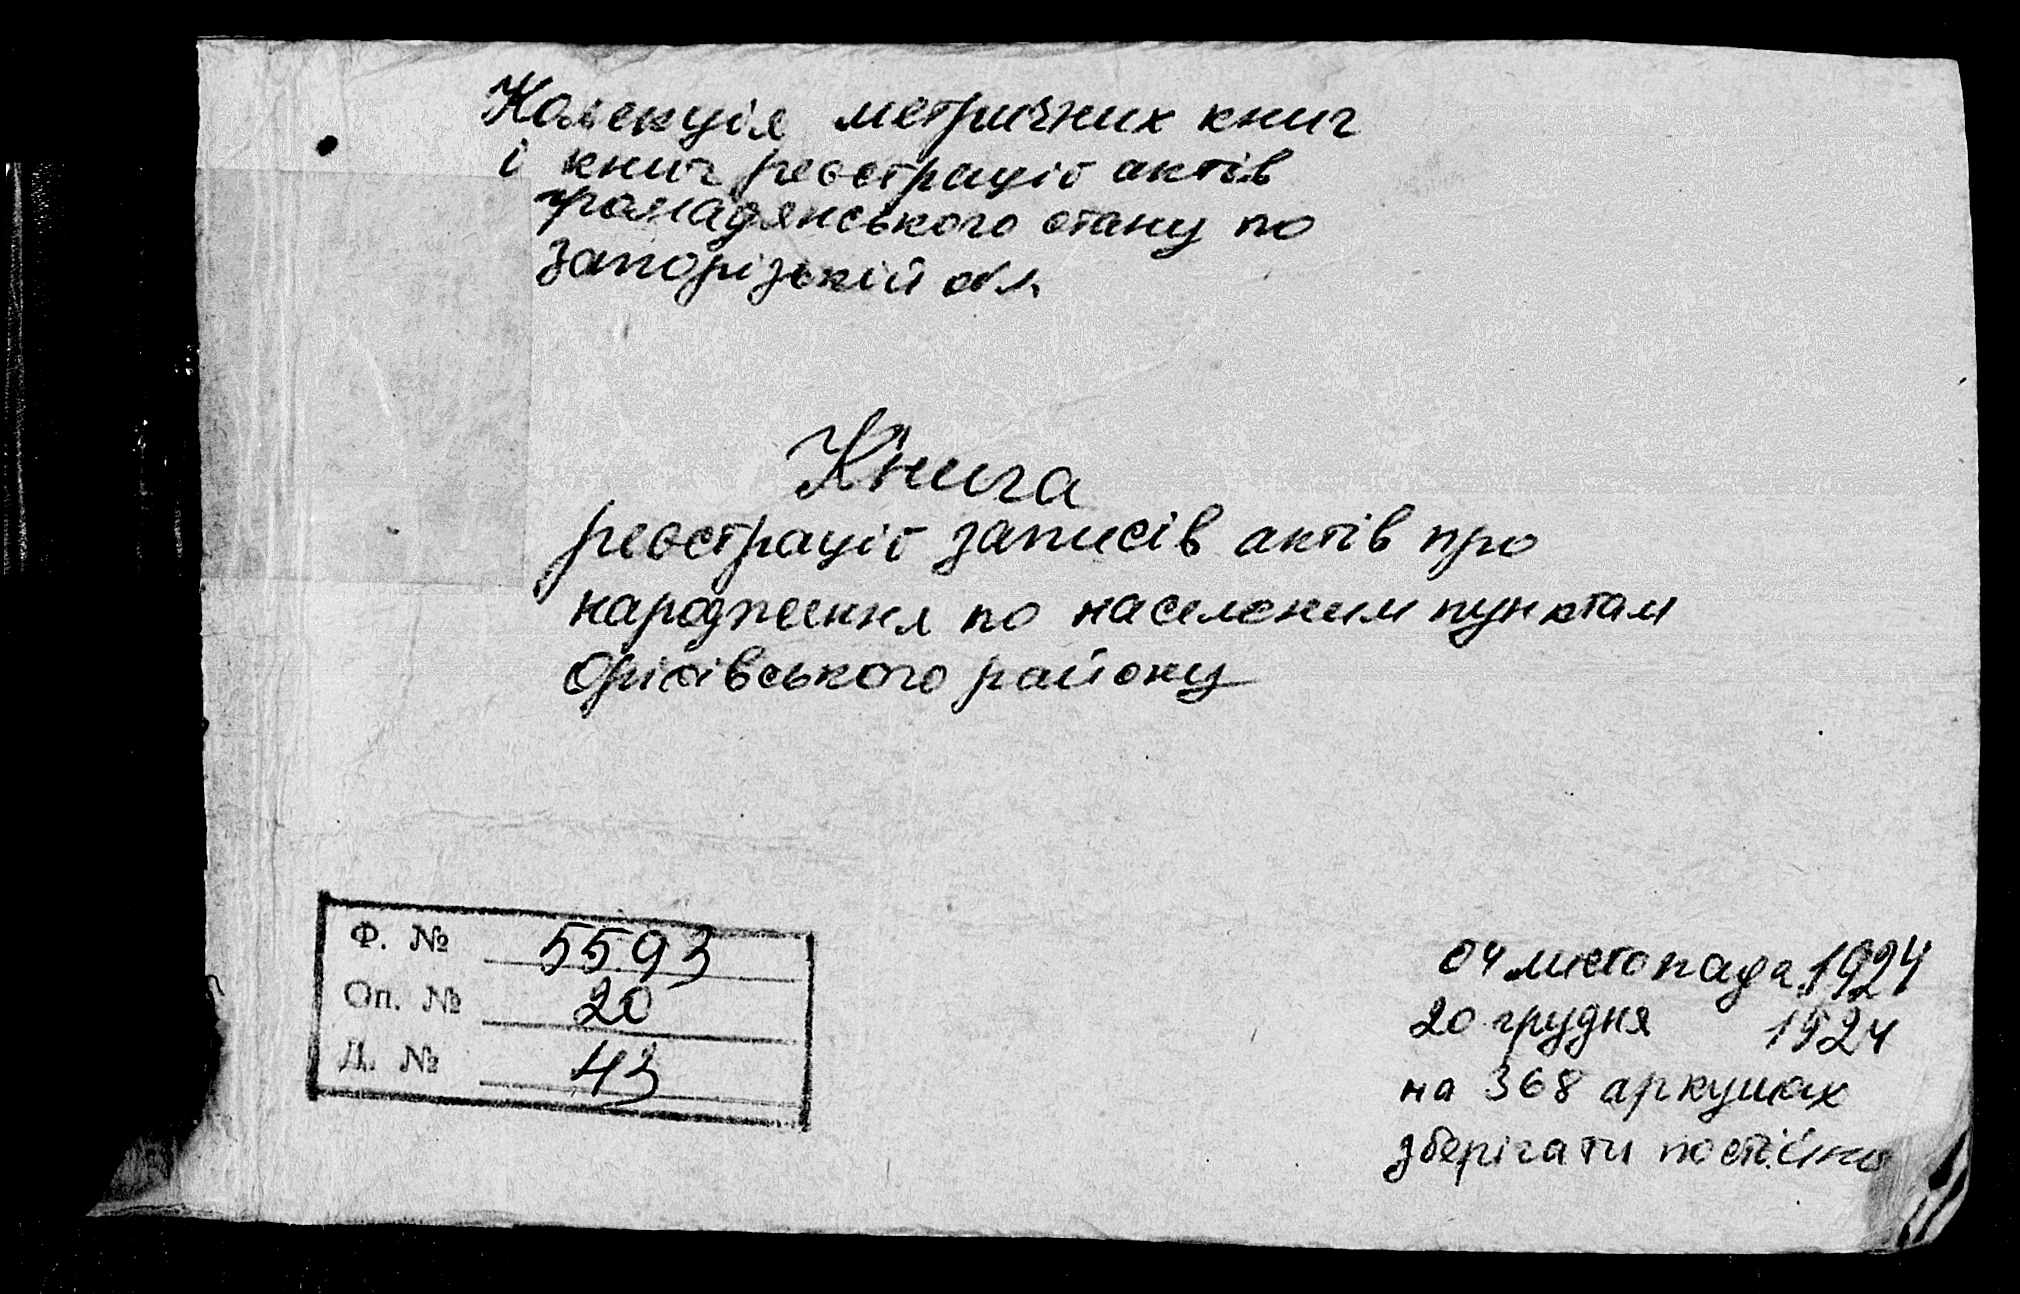 Колекція метричних книг
і книг реєстрації актів
громадянського стану по
Запорізькій обл.
Книга
реєстрації записів актів про
народження по населеним пунктам
Оріхівського району
Ф. № 5593
Оп. № 20
Д. № 43
04 листопада 1924
20 грудня 1924
на 368 аркушах
зберігати постійно